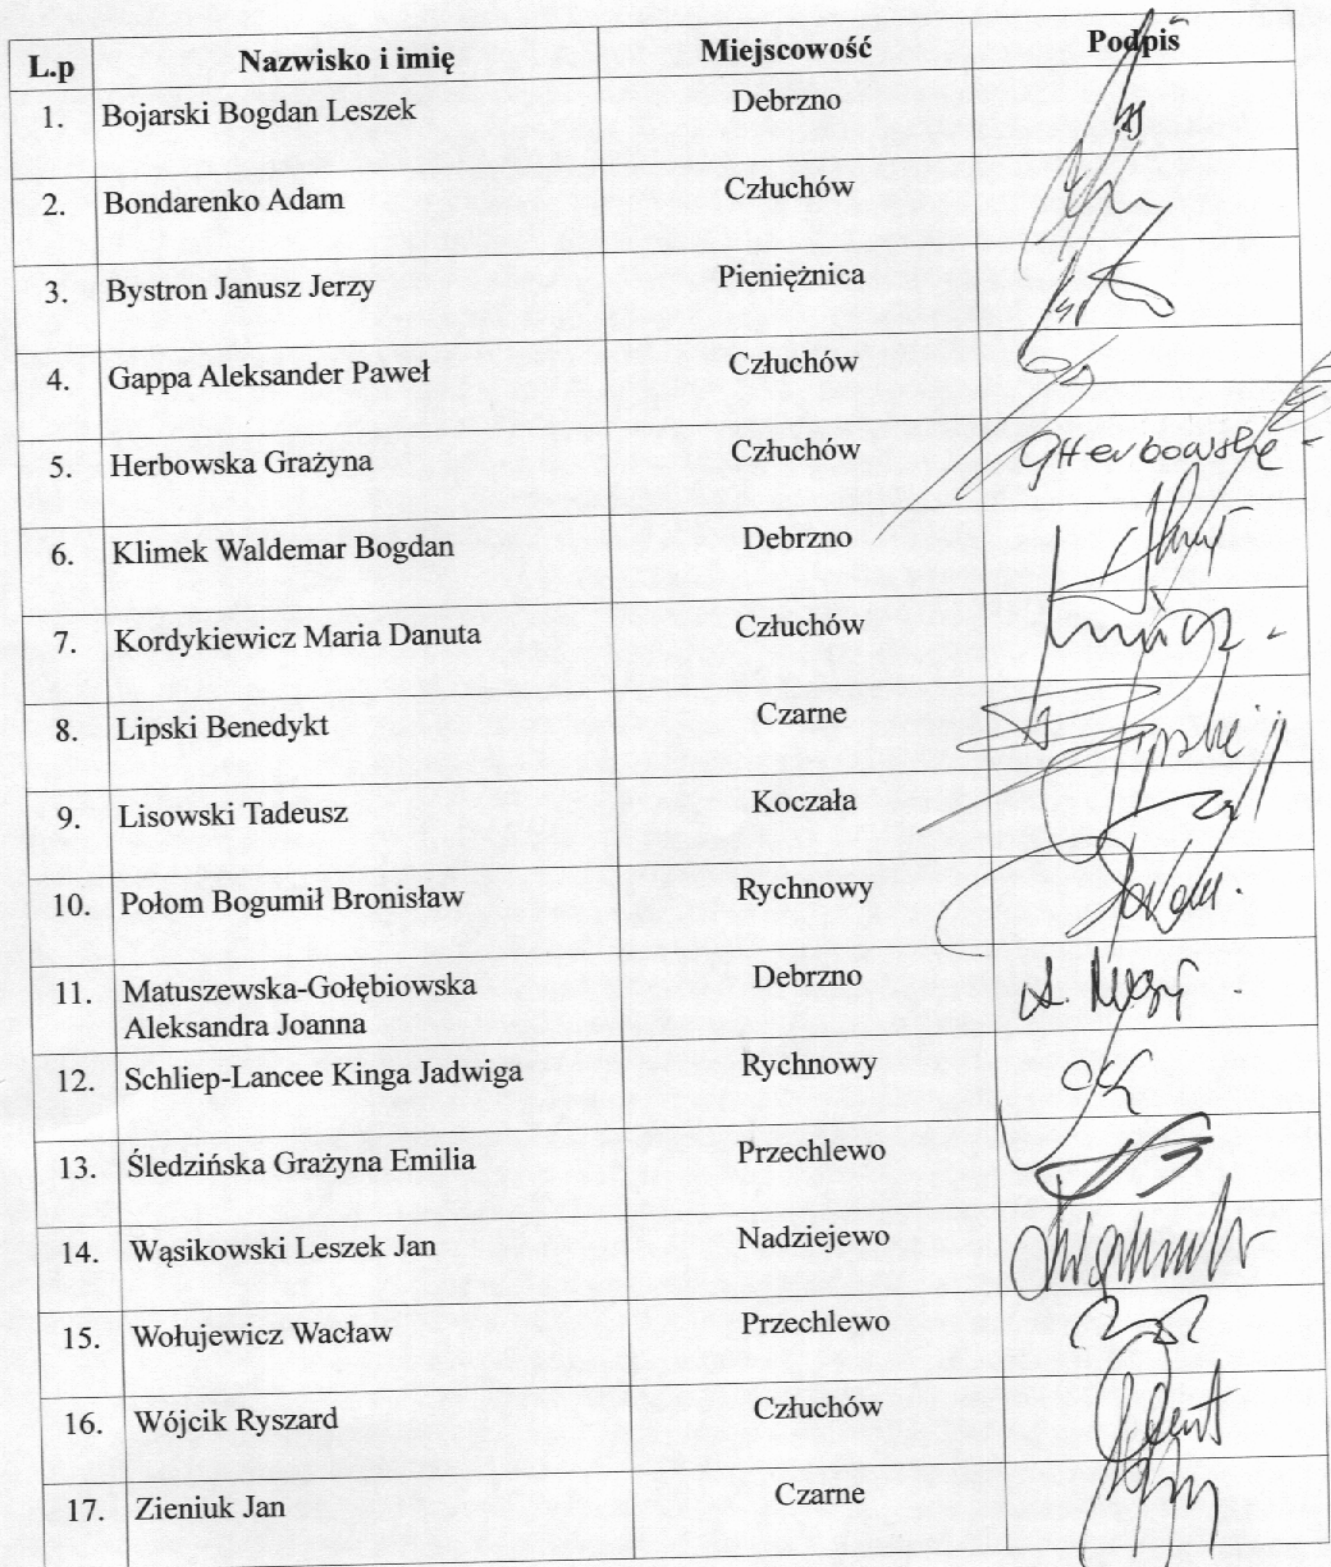 L.p Nazwisko i imię Miejscowość Podpis
1. Bojarski Bogdan Leszek Debrzno
2. Bondarenko Adam Człuchów
3. Bystron Janusz Jerzy Pieniężnica
4. Gappa Aleksander Paweł Człuchów
5. Herbowska Grażyna Człuchów GHerbowska
6. Klimek Waldemar Bogdan Debrzno
7. Kordykiewicz Maria Danuta Człuchów
8. Lipski Benedykt Czarne
9. Lisowski Tadeusz Koczała
10. Połom Bogumił Bronisław Rychnowy
11. Matuszewska-Gołębiowska Debrzno
Aleksandra Joanna
12. Schliep-Lancee Kinga Jadwiga Rychnowy
13. Śledzińska Grażyna Emilia Przechlewo
14. Wąsikowski Leszek Jan Nadziejewo
15. Wołujewicz Wacław Przechlewo
16. Wójcik Ryszard Człuchów
17. Zieniuk Jan Czarne